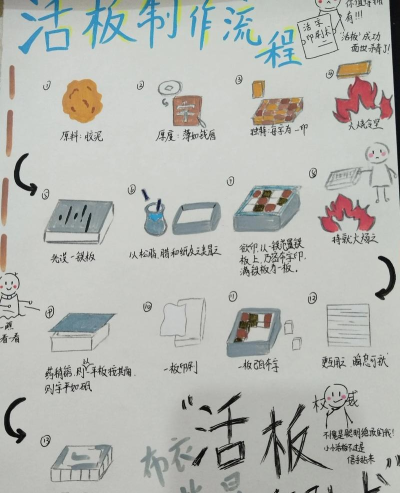 活板制作流程
活字
印刷术
"活板"成功
面世了!!
① 原料:胶泥
② 厚度:薄如钱唇
③ 独特:每字为一印
④ 火烧令坚
⑤ 先设一铁板
⑥ 以松脂、腊和纸灰之类冒之
⑦ 欲印,以一铁范置铁
板上,乃密布字印,
满铁板为一板,
⑧ 持就火炀之
⑨ 药稍熔,则以一平板按其面,
则字平如砥
⑩ 一板印刷
⑪ 一板已自布字
⑫ 更互用之,瞬息可就
⑬
看一看
"活
板
布衣